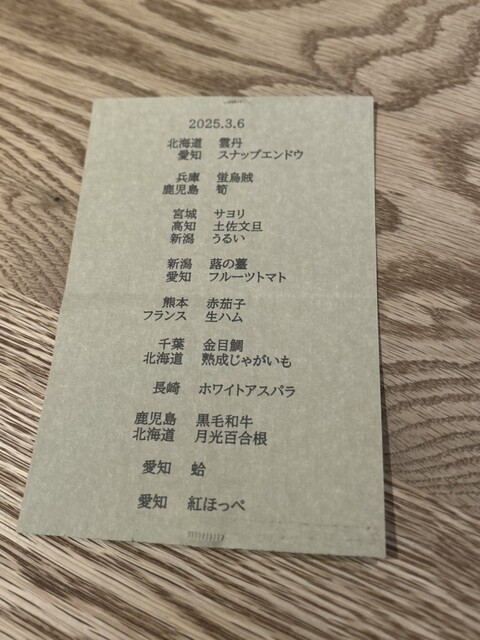 2025.3.6
北海道 雲丹
愛知 スナップエンドウ
兵庫 蛍烏賊
鹿児島 筍
宮城 サヨリ
高知 土佐文旦
新潟 うるい
新潟 蕗の薹
愛知 フルーツトマト
熊本 赤茄子
フランス 生ハム
千葉 金目鯛
北海道 熟成じゃがいも
長崎 ホワイトアスパラ
鹿児島 黒毛和牛
北海道 月光百合根
愛知 蛤
愛知 紅ほっぺ